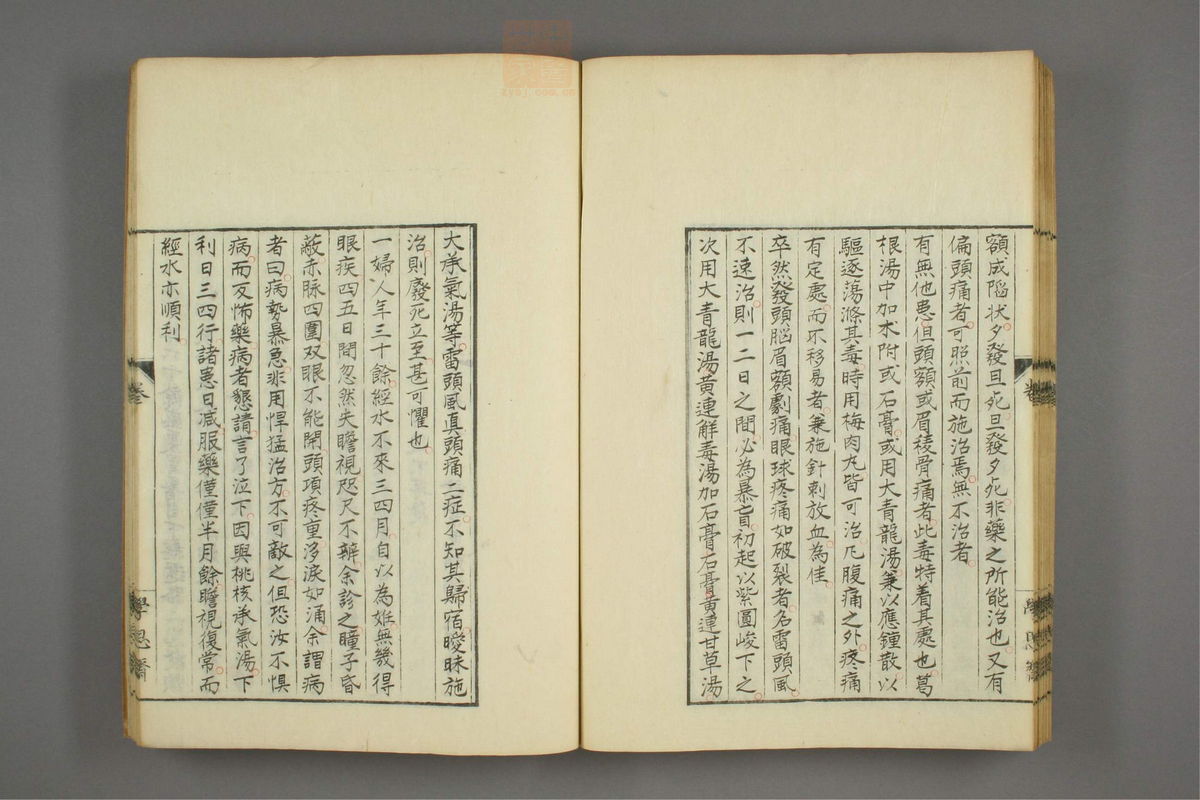 額成陷状夕發旦死旦發夕死非藥之所能治也又有
偏頭痛者可照前而施治焉無不治者
有無他患但頭額或眉稜骨痛者此毒特着其處也葛
根湯中加朮附或石膏或用大青龍湯兼以應鐘散以
驅逐蕩滌其毒時用梅肉丸皆可治凡腹痛之外疼痛
有定處而不移易者兼施針刺放血為佳
卒然發頭脳眉額劇痛眼球疼痛如破裂者名雷頭風
不速治則一二日之間必為暴盲初起以紫圓峻下之
次用大青龍湯黄連解毒湯加石膏石膏黄連甘草湯
大承氣湯等雷頭風真頭痛二症不知其歸宿曖昧施
治則廢死立至甚可懼也
一婦人年三十餘經水不來三四月自以為姙無幾得
眼疾四五日間忽然失瞻視咫尺不辨余診之瞳子昏
蔽赤脉四圍双眼不能開頭項疼重涕淚如涌余謂病
者曰病勢暴急非用悍猛治方不可敵之但恐汝不惧
病而反怖藥病者懇請言了泣下因與桃核承氣湯下
利日三四行諸患日减服藥僅僅半月餘瞻視復常而
經水亦順利
卷
學思齋